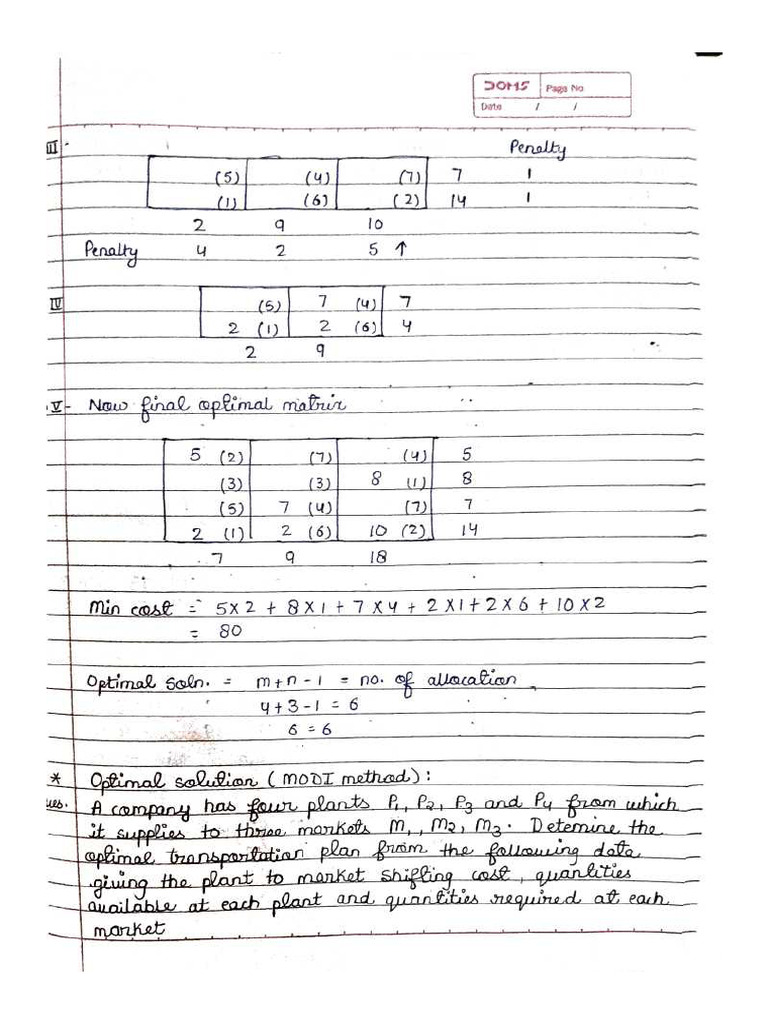 DOMS Page No
Date / /
III - Penalty
(5) (4) (7) 7 1
(1) (6) (2) 14 1
2 9 10
Penalty 4 2 5 ↑
IV (5) 7 (4) 7
2 (1) 2 (6) 4
2 9
V - Now final optimal matrix
5 (2) (7) (4) 5
(3) (3) 8 (1) 8
(5) 7 (4) (7) 7
2 (1) 2 (6) 10 (2) 14
7 9 18
Min cost = 5X2 + 8X1 + 7X4 + 2X1 + 2X6 + 10X2
= 80
Optimal Soln. = m+n-1 = no. of allocation
4+3-1 = 6
6 = 6
* Optimal solution (MODI method):
ues. A company has four plants P1, P2, P3 and P4 from which
it supplies to three markets M1, M2, M3. Detemine the
optimal transportation plan from the following data
giving the plant to market shifting cost, quantities
available at each plant and quantities required at each
market